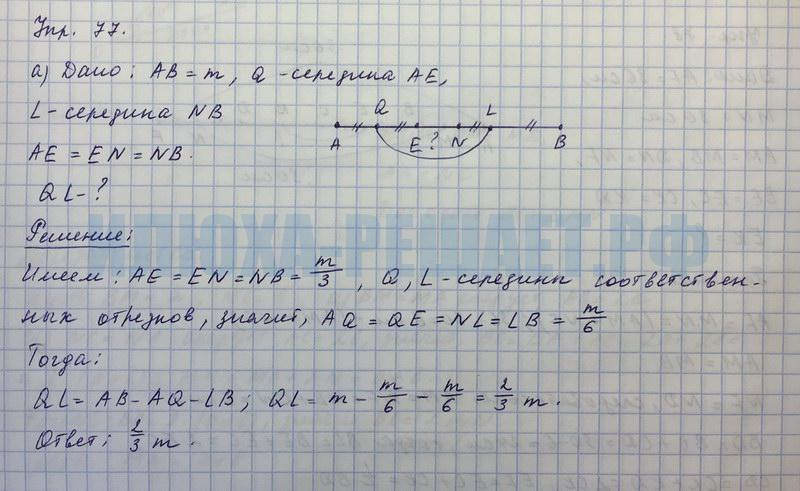 Упр. 77.
а) Дано: AB = m, Q - середина AE,
L - середина NB
AE = EN = NB.
QL - ?
Q L
A E ? N B
ИЛЮХА-РЕШАЕТ.РФ
Решение:
Имеем: AE = EN = NB = m/3, Q, L - середины соответствен-
ных отрезков, значит, AQ = QE = NL = LB = m/6
Тогда:
QL = AB - AQ - LB; QL = m - m/6 - m/6 = 2/3 m.
Ответ: 2/3 m.